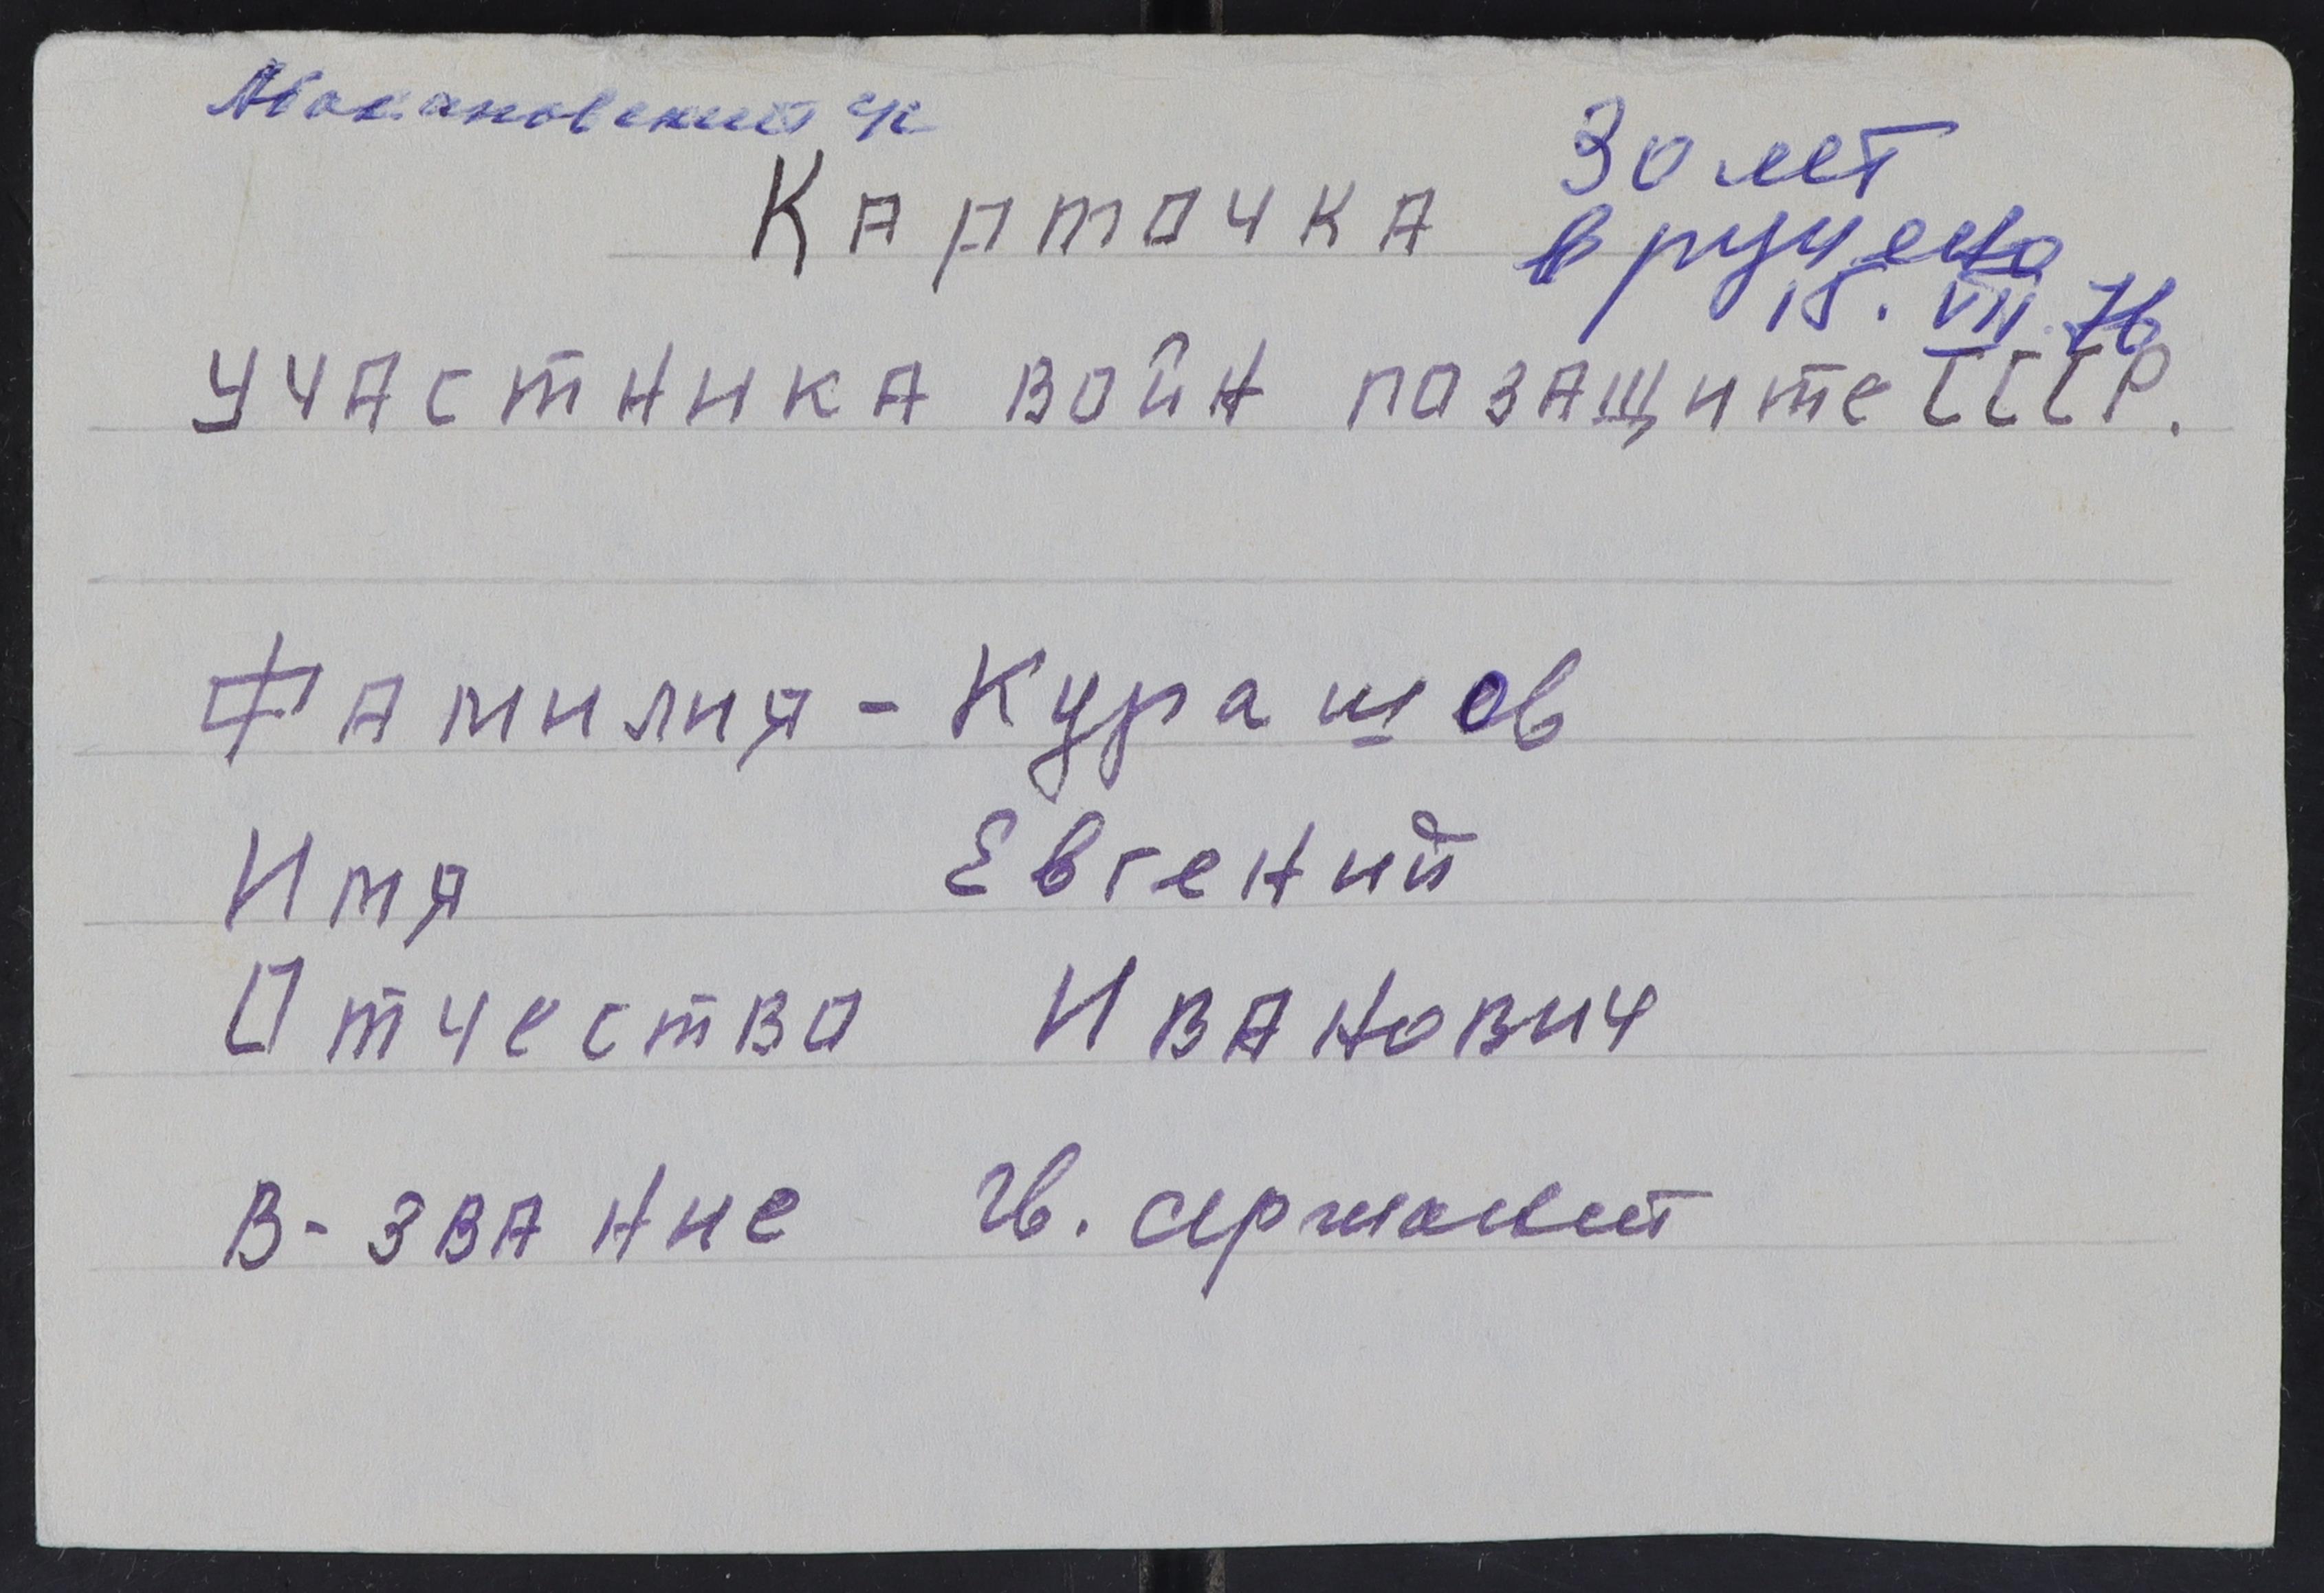 Абакановский с/с
30 лет
Карточка
вручено
15. VII 76
участника войн по защите СССР.
Фамилия - Курашов
Имя Евгений
Отчество Иванович
В-звание гв. сержант